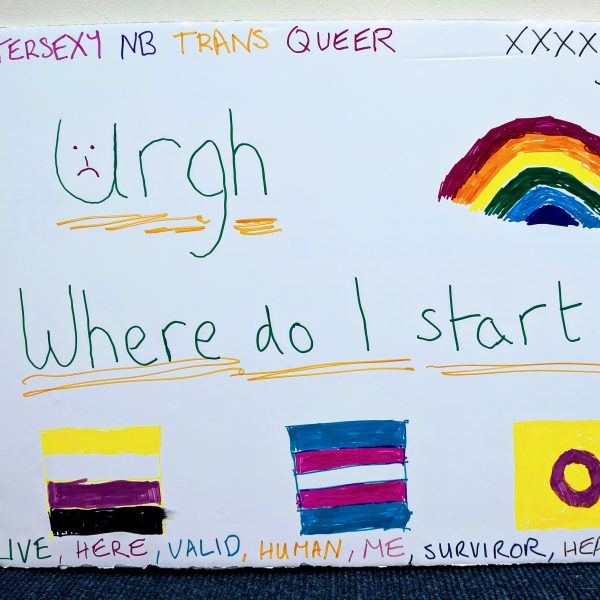 TERSEXY NB TRANS QUEER XXXX
Urgh
Where do I start
LIVE, HERE, VALID, HUMAN, ME, SURVIROR, HEA